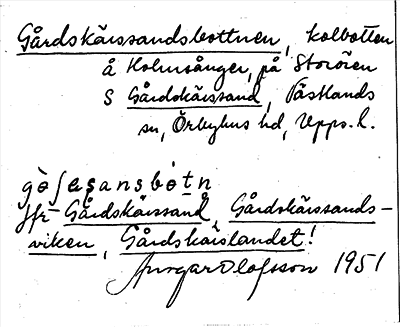 Gårdskärssandsbottnen, kolbotten
å Holmsånger, på Storören
S Gårdskärssand, Västlands
sn, Örbyhus hd, Upps. l.
gò̀ʃesansbòtn
Jfr Gårdskärssand, Gårdskärssands-
viken, Gårdskärslandet!
Ansgar Olofsson 1951